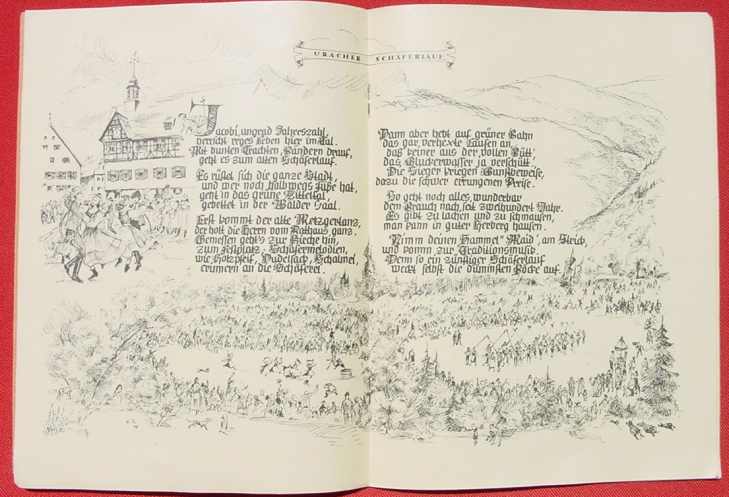 URACHER SCHÄFERLAUF
Jacobi, ungrad Jahreszahl,
herrscht reges Leben hier im Tal.
Mit bunten Trachten, Bändern drauf,
geht es zum alten Schäferlauf.
Es rüstet sich die ganze Stadt,
und wer noch halbwegs Füße hat,
geht in das grüne Wittelsgal,
gebettet in der Wälder Saal.
Erst kommt der alte Metzgertanz,
der holt die Herrn vom Rathaus ganz.
Gemessen geht's zur Kirche hin,
zum Festplatz, Schäfermelodien,
wie Holzpfeif, Dudelsack, Schalmei,
erinnern an die Schäferei.
Dann aber hebt auf grüner Bahn
das gar verhexte Laufen an,
daß keiner aus der vollen Bütt'
das Gluckerwasser ja verschütt.
Die Sieger kriegen Gunstbeweise,
dazu die schwer errungenen Preise.
So geht noch alles, wunderbar
dem Brauch nach, seit zweihundert Jahr.
Es gibt zu lachen und zu schmausen,
man kann in guter Herberg hausen.
"Nimm deinen Hammel" Maid, am Strick,
und komm zur Traditionsmusik.
Denn so ein zünftiger Schäferlauf
weckt selbst die dümmsten Böcke auf.